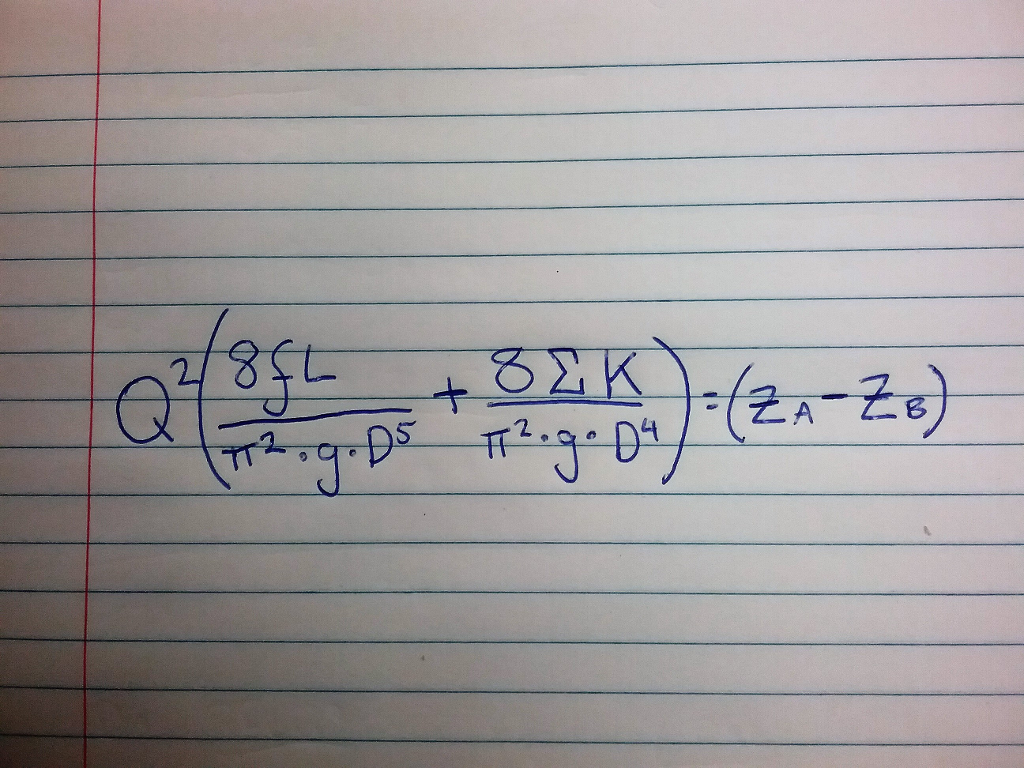 Q²(8fL/π²·g·D⁵ + 8ΣK/π²·g·D⁴) = (Z_A - Z_B)